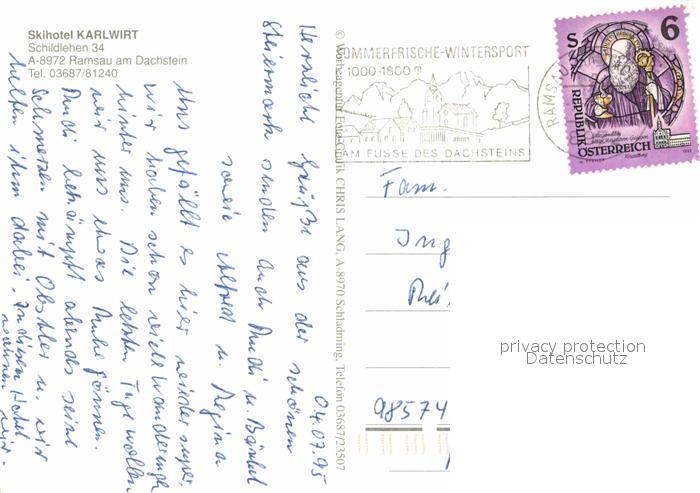 Skihotel KARLWIRT
Schildlehen 34
A-8972 Ramsau am Dachstein
Tel. 03687/81240
04.07.95
Herzliche Grüße aus der schönen
Steiermark senden Euch Rudi u. Bärbel
sowie Alfred u. Regina
Uns gefällt es hier wieder super,
wir haben schon viele Wanderungen
hinter uns. Die letzten Tage wollen
wir uns etwas Ruhe gönnen.
Rudi bekämpft abends seine
Schmerzen mit Obstler u. wir
helfen ihm dabei. In diesem Hotel
wohnen wir.
© Werbeagentur Foto-Grafik CHRIS LANG, A-8970 Schladming, Telefon 03687/23507
SOMMERFRISCHE-WINTERSPORT
1000-1800 m
AM FUSSE DES DACHSTEINS
RAMSAU
S 6
REPUBLIK
ÖSTERREICH
Fam.
Ing
98574
privacy protection
Datenschutz